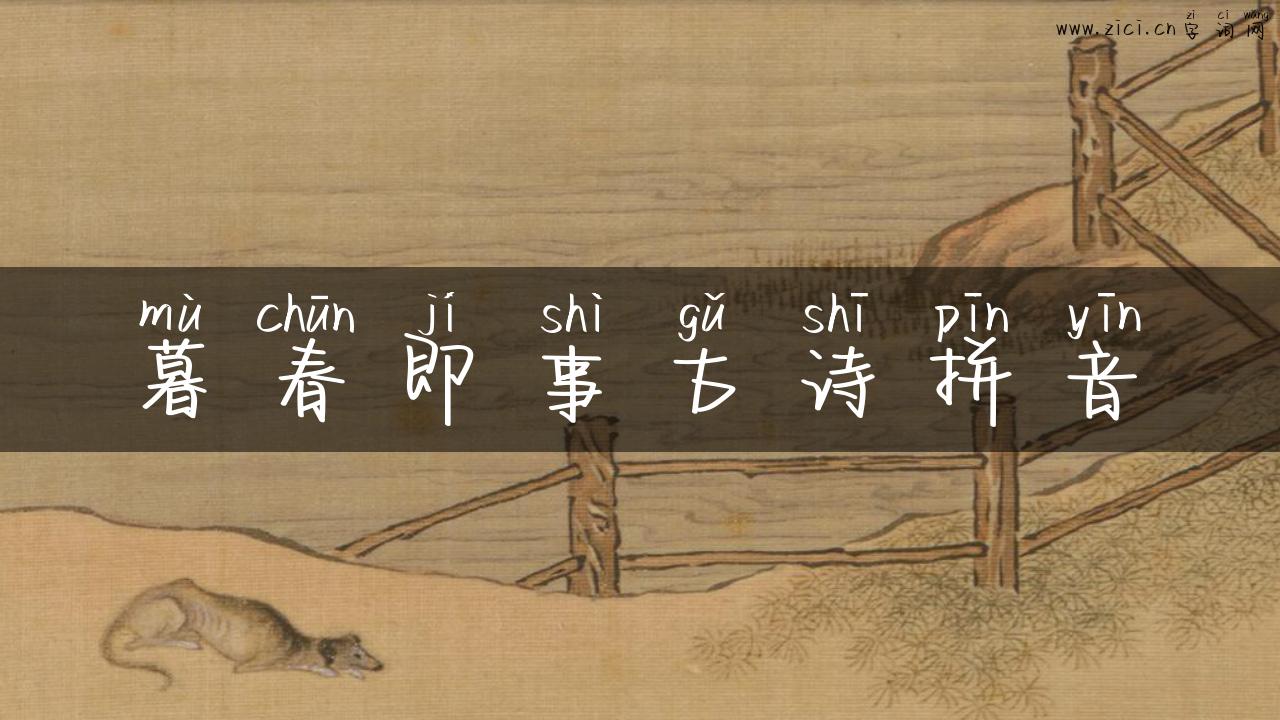 zì cí wǎng
www.zici.cn 字词网
mù chūn jí shì gǔ shī pīn yīn
暮春即事古诗拼音